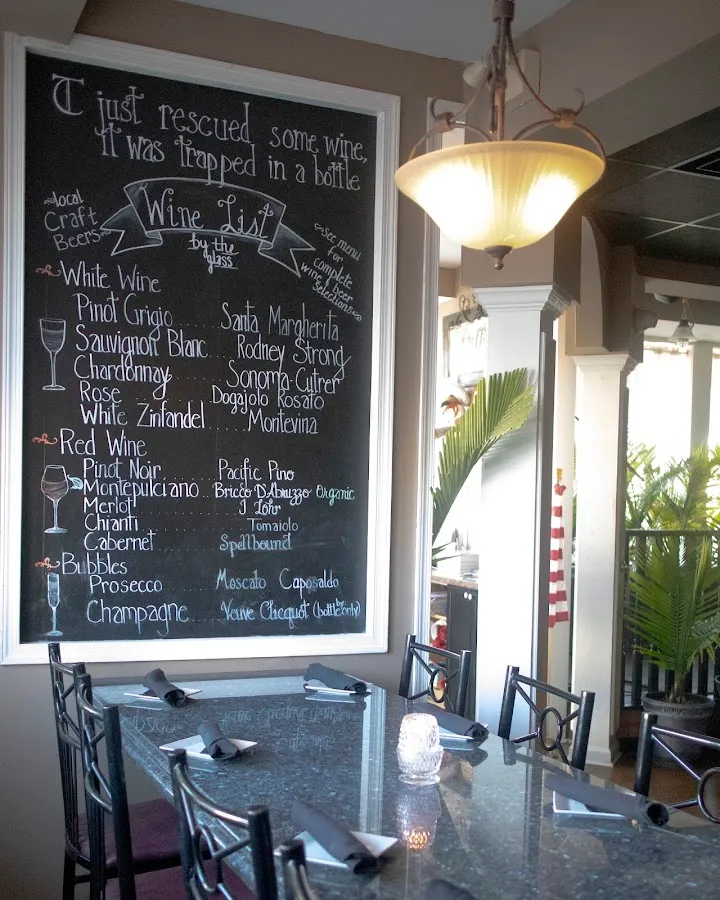 I just rescued some wine,
it was trapped in a bottle
local
Craft
Beers
Wine List
by the
glass
See menu
for
complete
wine & beer
selections
White Wine
Pinot Grigio Santa Margherita
Sauvignon Blanc Rodney Strong
Chardonnay Sonoma-Cutrer
Rose Dogajolo Rosato
White Zinfandel Montevina
Red Wine
Pinot Noir Pacific Pino
Montepulciano Bricco D'Abruzzo Organic
Merlot J Lohr
Chianti Tomaiolo
Cabernet Spellbound
Bubbles
Prosecco Moscato Caposaldo
Champagne Veuve Clicquot (bottle only)